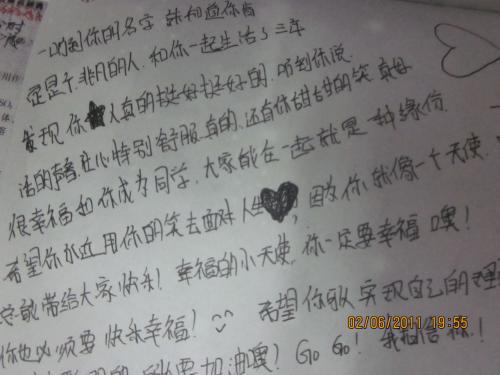 一听到你的名字 就知道你肯
定是个非凡的人. 和你一起生活了三年
发现你人真的挺好挺好的. 听到你说
话的声音在心特别舒服真的. 还有你甜甜的笑 真好
很幸福和你成为同学. 大家能在一起就是一种缘份
希望你永远用你的笑去面对人生, 因为你就像一个天使.
总能带给大家快乐! 幸福的小天使. 你一定要幸福噢!
你也必须要快乐幸福! 希望你可以实现自己的理
要加油噢! GO GO! 我相信你!
02/06/2011 19:55